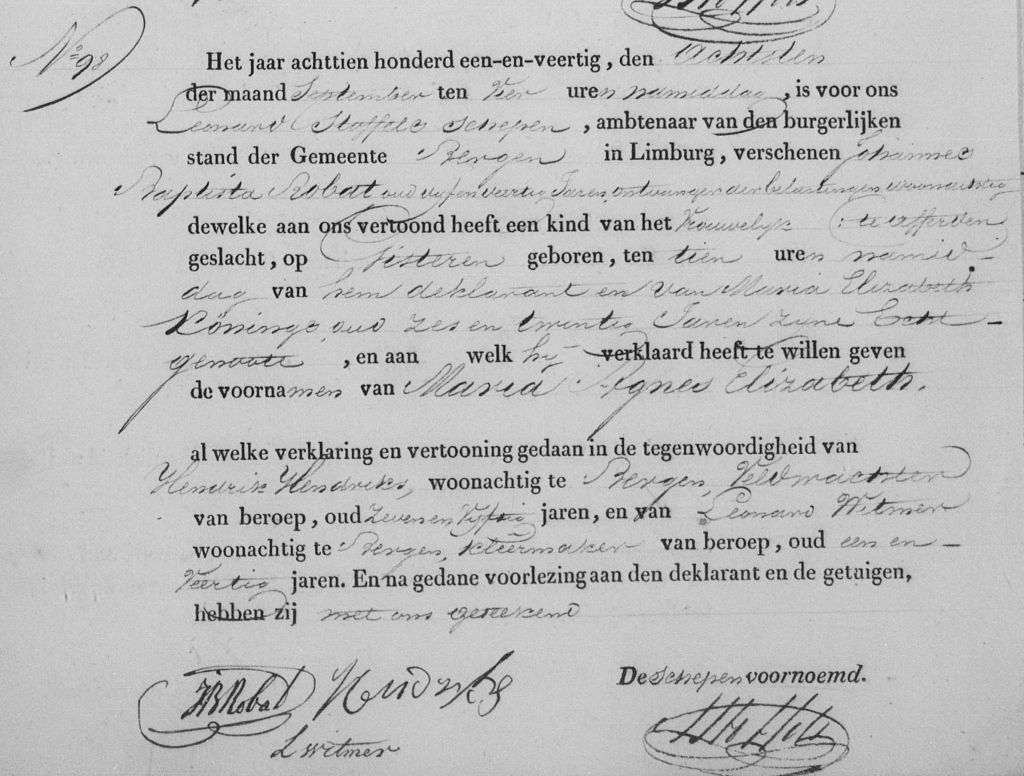 Nº 98
Het jaar achttien honderd een-en-veertig, den Achtsten
der maand September ten Vier uren namiddag, is voor ons
Leonard Stoffels Schepen, ambtenaar van den burgerlijken
stand der Gemeente Bergen in Limburg, verschenen Johannes
Baptista Robat oud vyfenveertig Jaren, ontvanger der belastingen woonachtig
dewelke aan ons vertoond heeft een kind van het Vrouwelyk : te Afferden
geslacht, op Gisteren geboren, ten tien uren namid-
dag van hem deklarant en van Maria Elizabeth
Konings, oud zes en twintig Jaren zyne Echt-
genoote, en aan welk hy verklaard heeft te willen geven
de voornamen van Maria Agnes Elizabeth.
al welke verklaring en vertooning gedaan in de tegenwoordigheid van
Hendrik Hendriks, woonachtig te Bergen, Veldwachter
van beroep, oud zeven en Vyftig jaren, en van Leonard Witmer
woonachtig te Bergen, kleermaker van beroep, oud een en-
Veertig jaren. En na gedane voorlezing aan den deklarant en de getuigen,
hebben zij met ons geteekend
JBRobat Hendriks
De Schepen voornoemd.
L Witmer